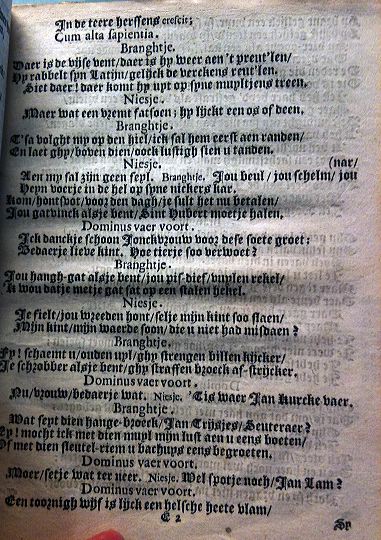 In de teere herssens crescit;
Cum alta sapientia.
Branghtje.
Daer is de vijse vent/daer is hy weer aen 't preut'len/
Hy rabbelt syn Latijn/gelijck de verckens reut'len.
Siet daer! daer komt hy upt op syne muyltjens treen.
Niesje.
Maer wat een vremt fatsoen; hy lijckt een os of deen.
Branghtje.
T'sa volght my op den hiel/ick sal hem eerst aen randen/
En laet ghy/boven dien/oock lustigh siet u tanden.
Niesje. (nar/
Aen my sal zijn geen feyl. Branghtje. Jou beul/jou schelm/jou
Heyn voerje in de hel op syne nickers kar.
Kom/hontsvot/voor den dagh/je sult het nu betalen/
Jou garvinck alsje bent/Sint Hubert moetje halen.
Dominus vaer voort.
Ick danckje schoon Jonckvrouw voor dese soete groet:
Bedaerje lieve kint. Hoe tierje soo verwoet?
Branghtje.
Jou hangh-gat alsje bent/jou pis-dief/vuylen rekel/
Ik wou datje metje gat sat op een stalen hekel.
Niesje.
Je fielt/jou wreeden hont/selje mijn kint soo slaen/
Mijn kint/mijn waerde soon/die u niet had misdaen?
Branghtje.
Fy! schaemt u/ouden uyl/ghy strengen billen kijcker/
Je schrobber alsje bent/ghy straffen broeck af-strijcker.
Dominus vaer voort.
Nu/vrouw/bedaerje wat. Niesje. 'Tis waer Jan Kurcke vaer.
Branghtje.
Wat seyt dien hange-broeck/Jan Trijsjes/Seuteraer?
Ey! mocht ick met dien muyl mijn lust aen u eens boeten/
Of met dien sleutel-riem u bachuys eens begroeten.
Dominus vaer voort.
Moer/setje wat ter neer. Niesje. Wel spotje noch/Jan Lam?
Dominus vaer voort.
Een toornigh wijf is lijck een helsche heete vlam/
E 2 Sy